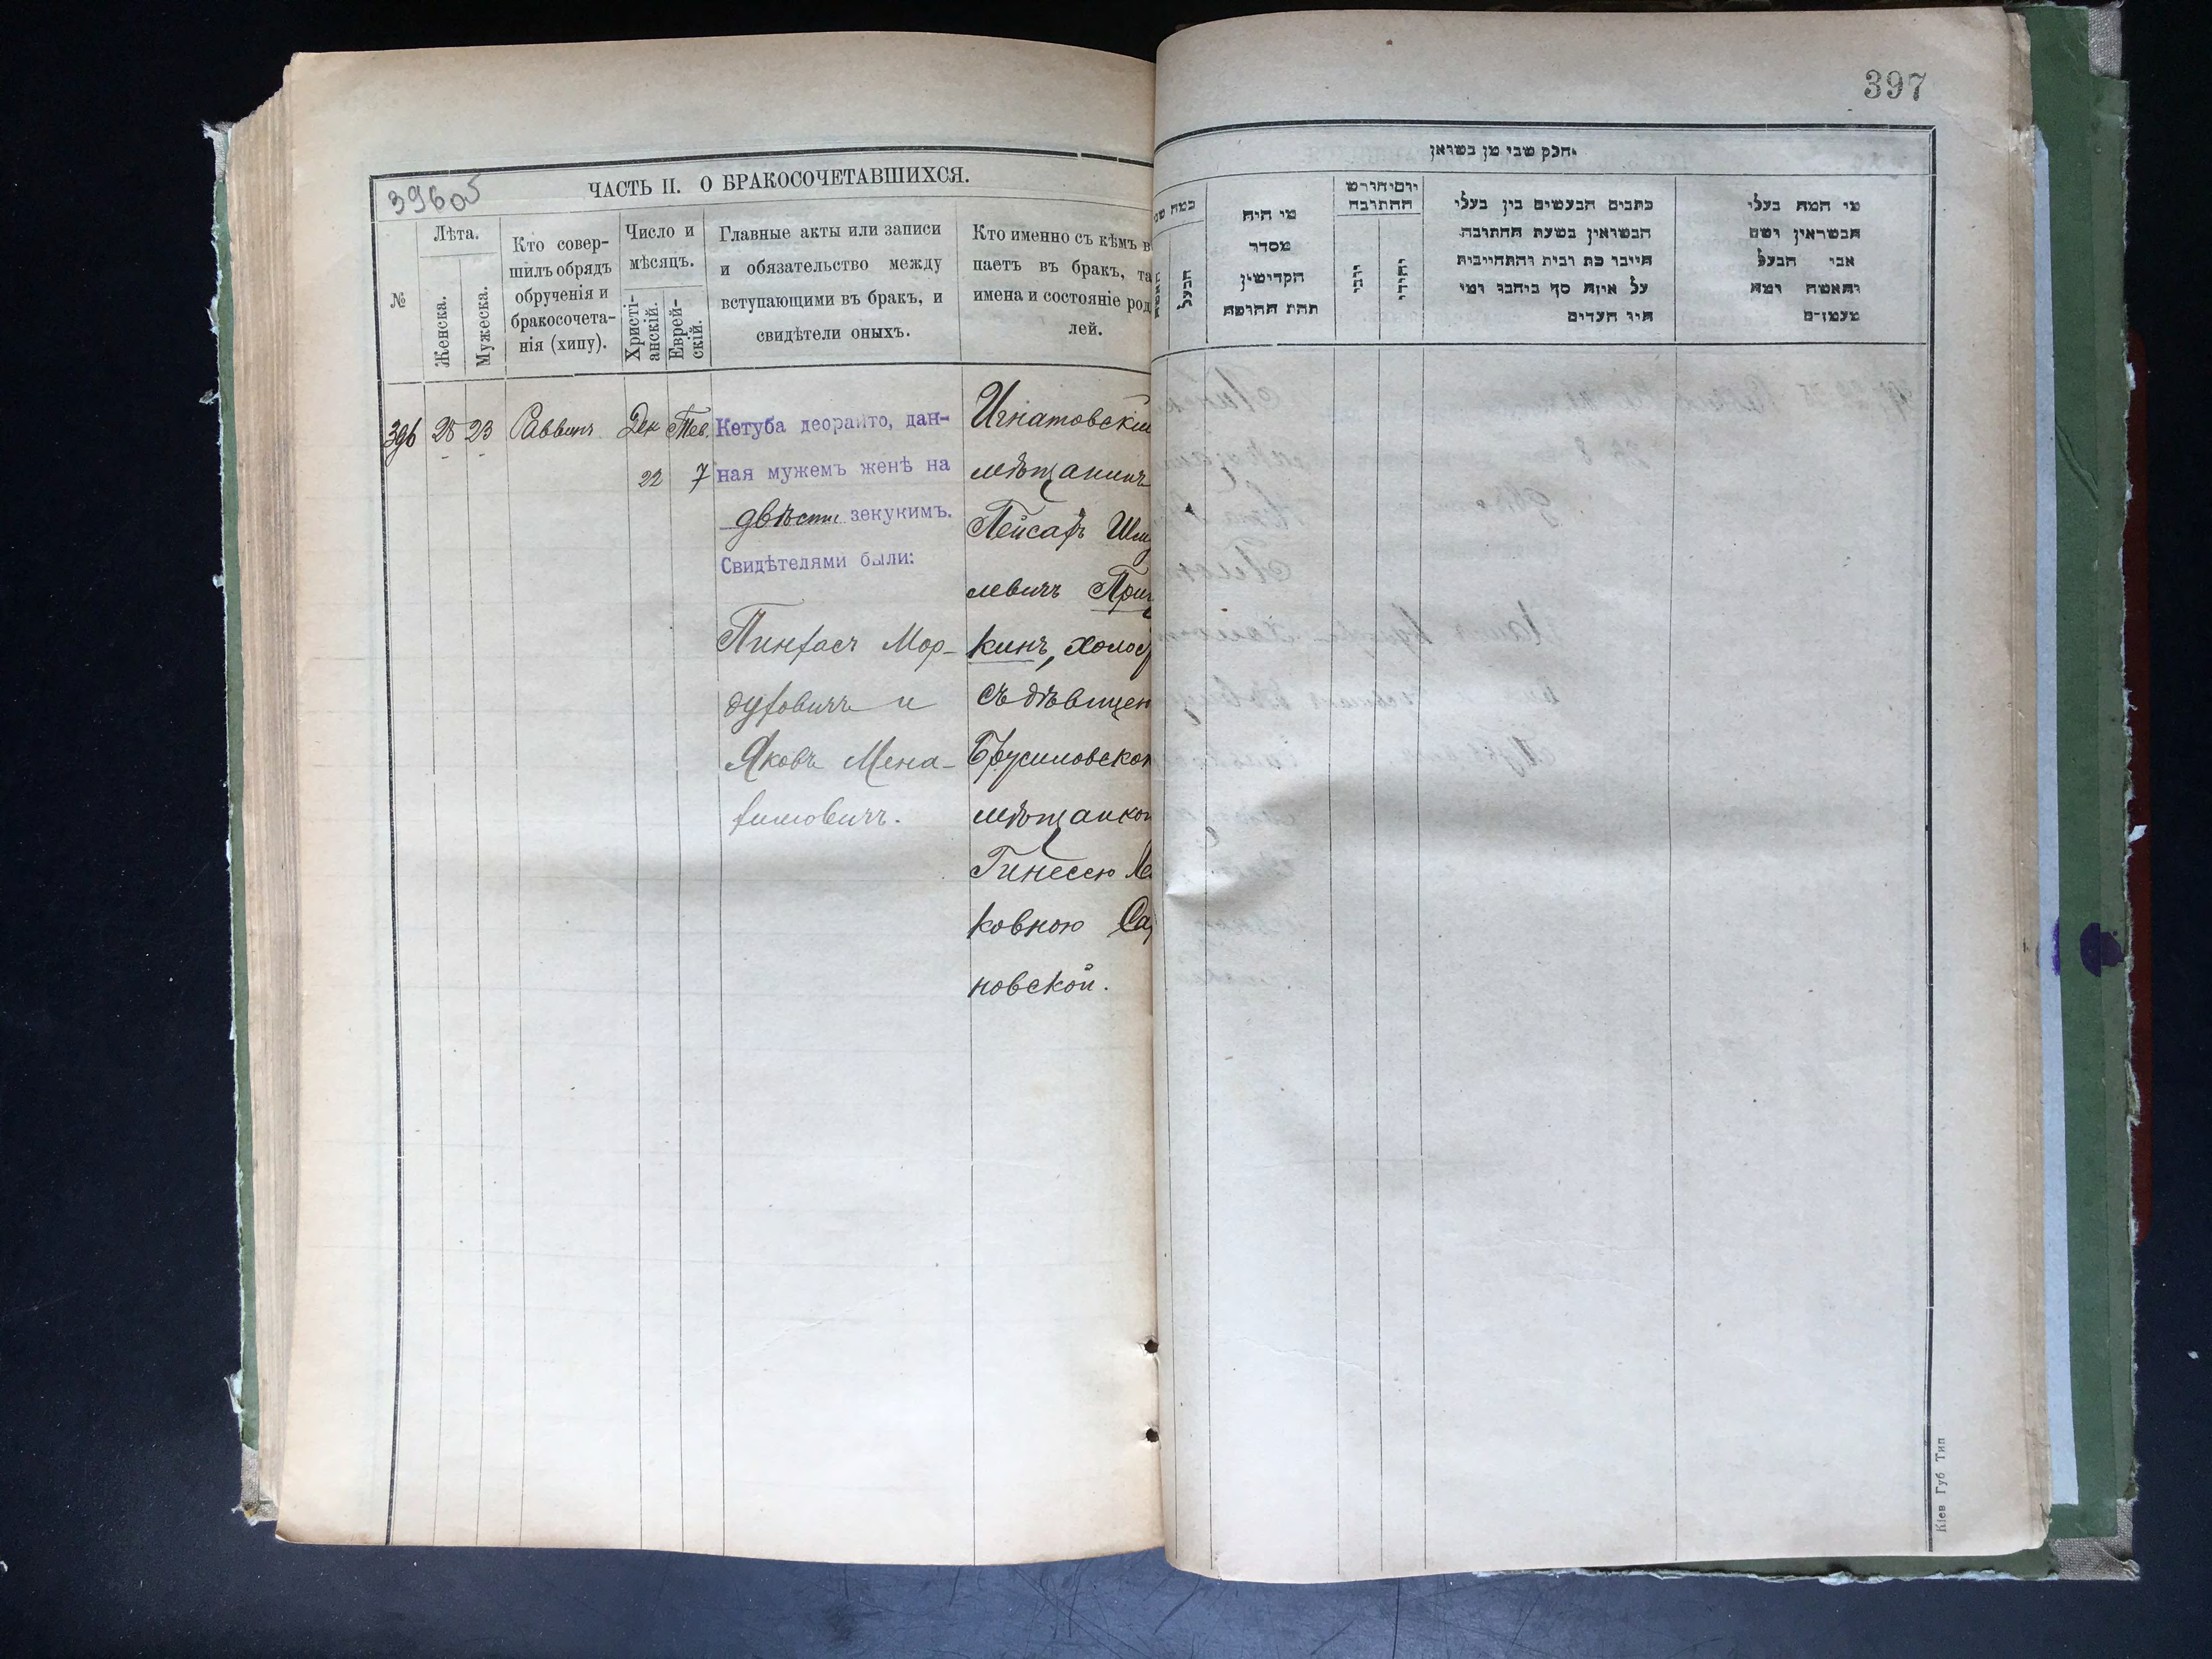 397
396об
ЧАСТЬ II. О БРАКОСОЧЕТАВШИХСЯ.
№
Лѣта.
Женска.
Мужеска.
Кто совер-
шилъ обрядъ
обрученія и
бракосочета-
нія (хипу).
Число и
мѣсяцъ.
Христі-
анскій.
Еврей-
скій.
Главные акты или записи
и обязательство между
вступающими въ бракъ, и
свидѣтели оныхъ.
Кто именно съ кѣмъ в
паетъ въ бракъ, та
имена и состояніе род
лей.
396
23
Раввинъ
Дек
22
Тев.
7
Кетуба деораито, дан-
ная мужемъ женѣ на
двѣсти зекукимъ.
Свидѣтелями были:
Пинхасъ Мор-
духовичъ и
Яковъ Мена-
химовичъ.
Игнатовскій
мѣщанинъ
Пейсахъ Шму
левичъ При
кинъ, холос
съ дѣвицею
Брусиловской
мѣщанкой
Гинесею
ковною Са
новской.
חלק שני מן נשואן
במה שנ
הבעל
מי היה
מסדר
הקדישין
תחת החופה
יום וחודש
החתונה
יוני
יהודי
כתבים הנעשים בין בעלי
הנשואין בשעת החתונה
חייבו כת ובית והתחייבות
על איזה סך ביחבו ומי
היו העדים
מי המה בעלי
הנשואין ושם
אבי הבעל
והאשה ומה
מעמדם
Кіев Губ Тип